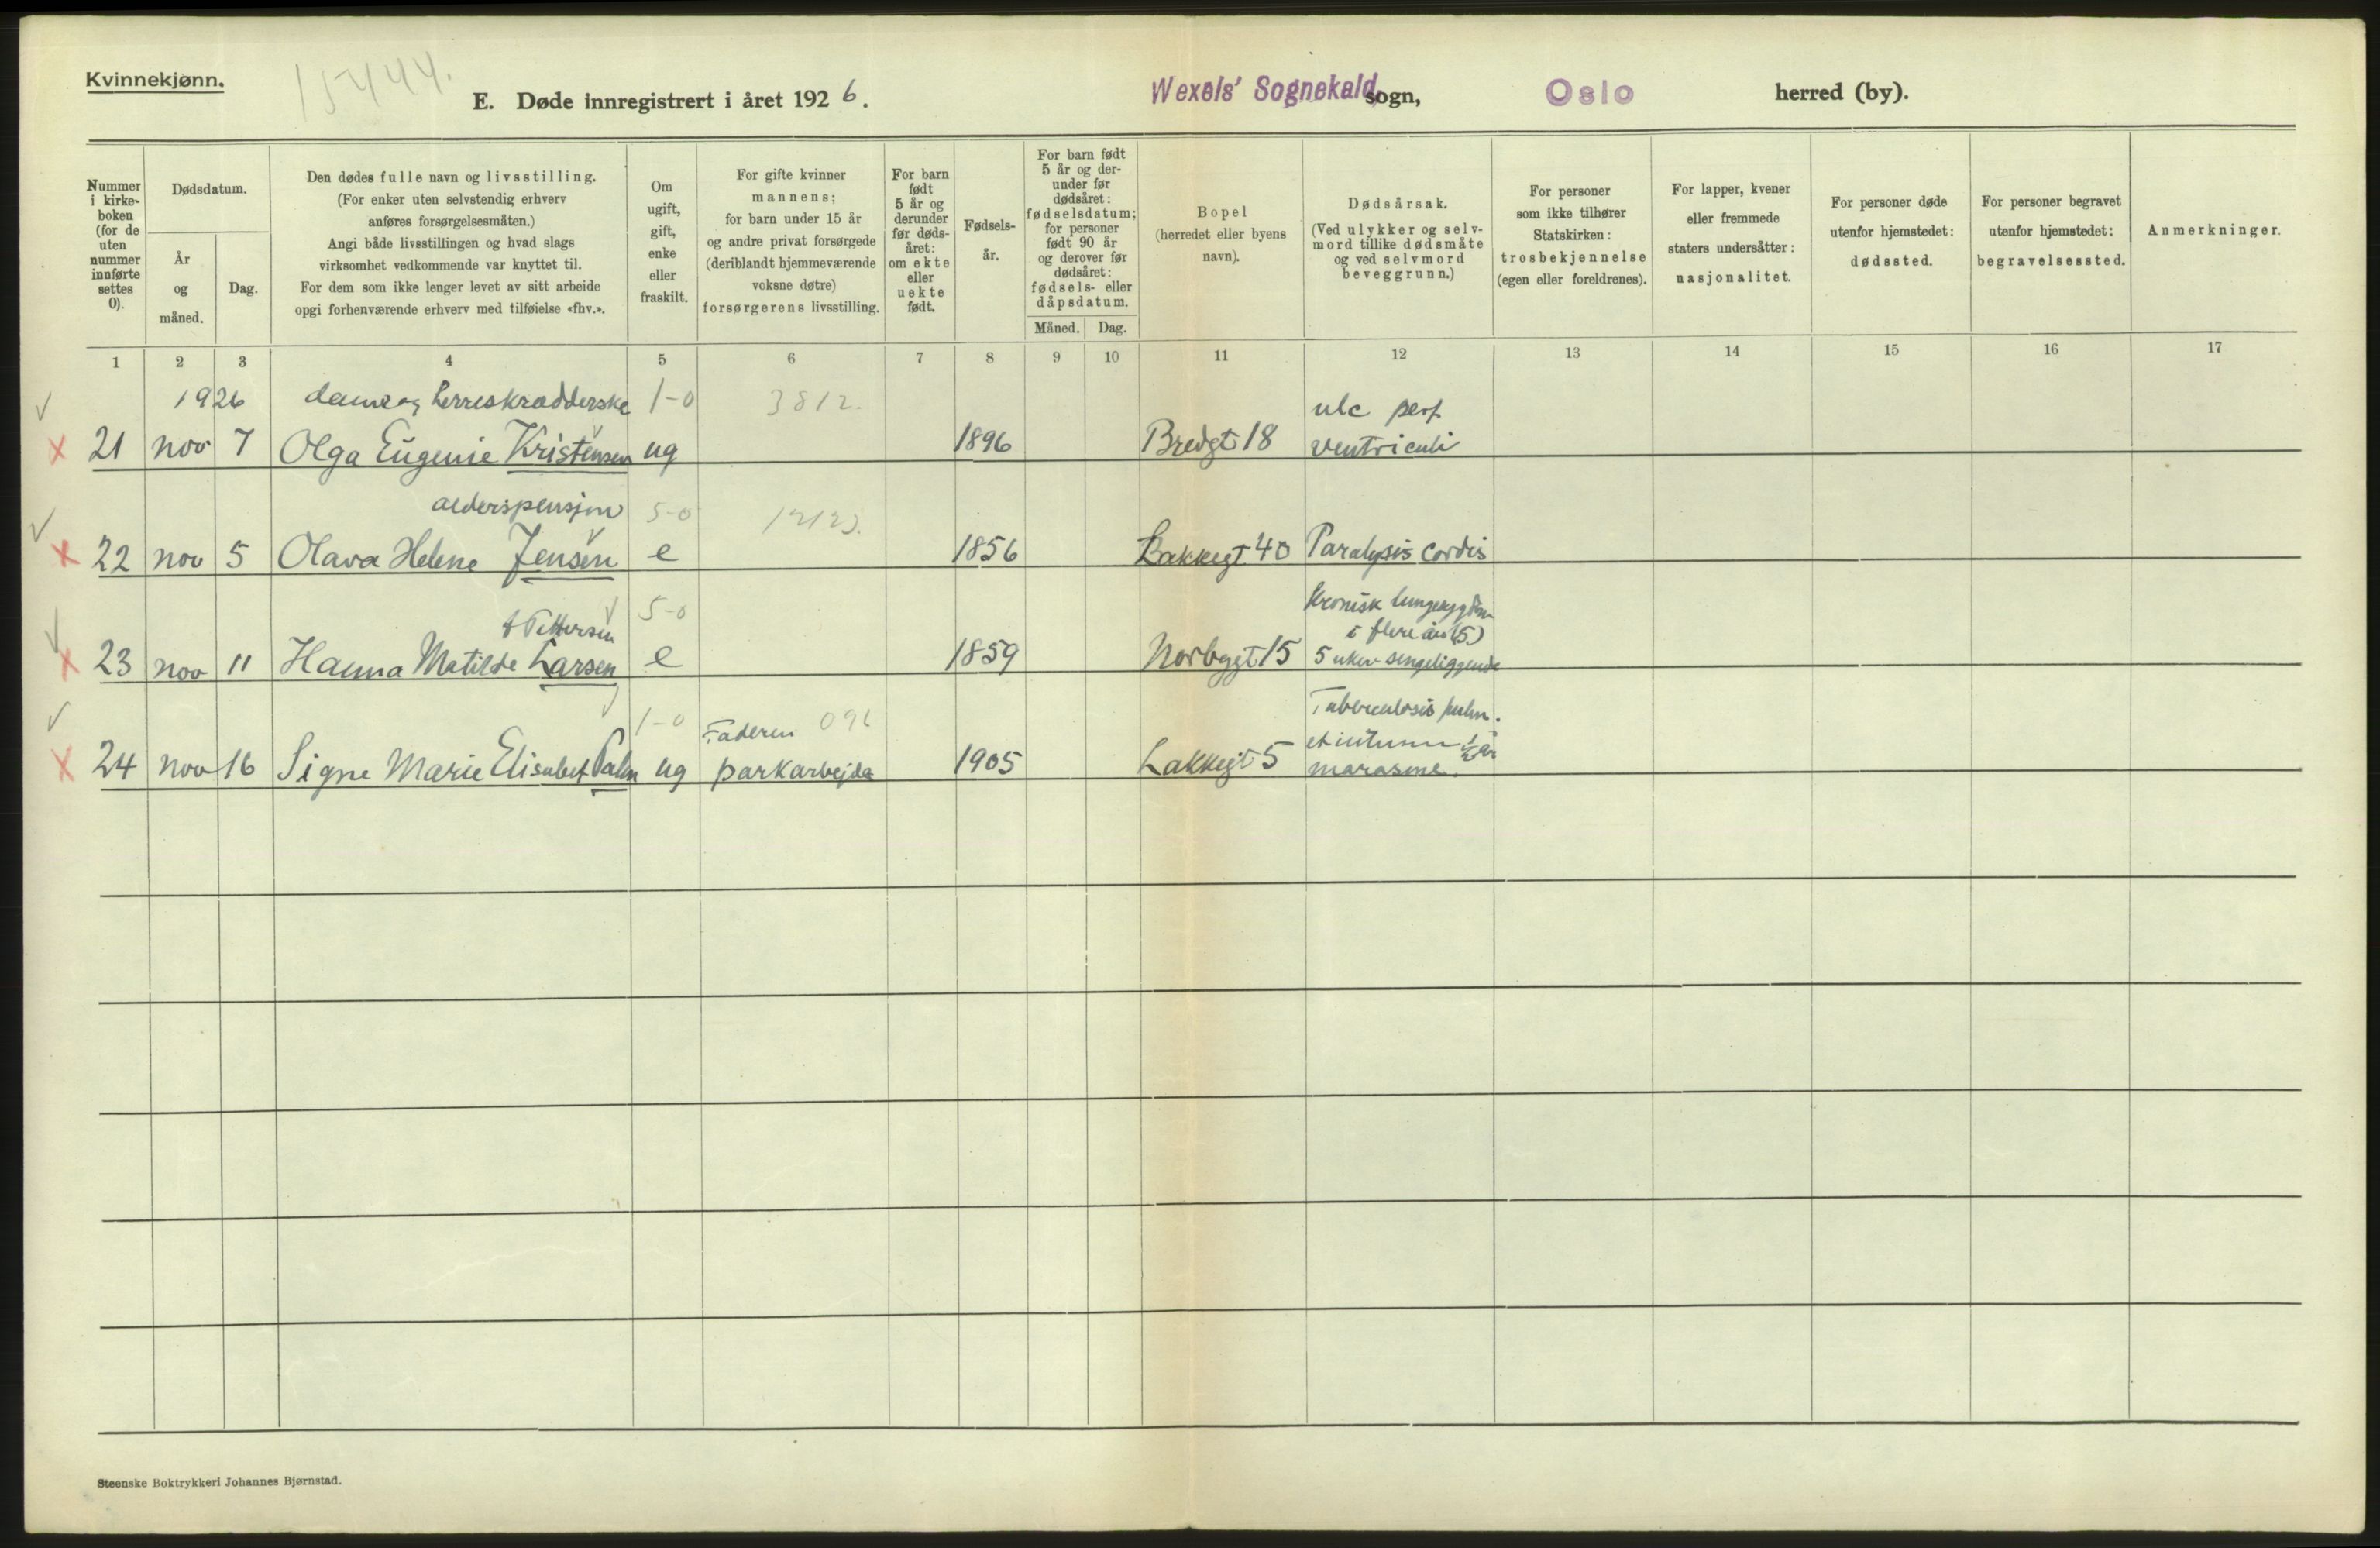 Kvinnekjønn.
15444.
E. Døde innregistrert i året 1926.
Wexels' Sognekald sogn,
Oslo
herred (by).
Nummer
i kirke-
boken
(for de
uten
nummer
innførte
settes
0).
Dødsdatum.
År
og
måned.
Dag.
Den dødes fulle navn og livsstilling.
(For enker uten selvstendig erhverv
anføres forsørgelsesmåten.)
Angi både livsstillingen og hvad slags
virksomhet vedkommende var knyttet til.
For dem som ikke lenger levet av sitt arbeide
opgi forhenværende erhverv med tilføielse «fhv.».
Om
ugift,
gift,
enke
eller
fraskilt.
For gifte kvinner
mannens;
for barn under 15 år
og andre privat forsørgede
(deriblandt hjemmeværende
voksne døtre)
forsørgerens livsstilling.
For barn
født
5 år og
derunder
før døds-
året:
om ekte
eller
uekte
født.
Fødsels-
år.
For barn født
5 år og der-
under før
dødsåret:
fødselsdatum;
for personer
født 90 år
og derover før
dødsåret:
fødsels- eller
dåpsdatum.
Måned. Dag.
Bopel
(herredet eller byens
navn).
Dødsårsak.
(Ved ulykker og selv-
mord tillike dødsmåte
og ved selvmord
beveggrunn.)
For personer
som ikke tilhører
Statskirken:
trosbekjennelse
(egen eller foreldrenes).
For lapper, kvener
eller fremmede
staters undersåtter:
nasjonalitet.
For personer døde
utenfor hjemstedet:
dødssted.
For personer begravet
utenfor hjemstedet:
begravelsessted.
Anmerkninger.
1 2 3 4 5 6 7 8 9 10 11 12 13 14 15 16 17
1926 dame og herreskrædderske 1-0 3812. ulc perf
21 nov 7 Olga Eugenie Kristensen ug 1896 Bredgt 18 ventriculi
alderspensjon 5-0 12123.
22 nov 5 Olava Helene Jensen e 1856 Bakkegt 40 Paralysis cordis
Kronisk
f Pettersen 5-0 i flere år (5)
23 nov 11 Hanna Matilde Larsen e 1859 Norbygt 15 5 uker sengeliggende
1-0 Faderen Tuberculosis pulm.
24 nov 16 Signe Marie Elisabet Palm ug parkarbejder 1905 Lakkegt 5 et intestin ½ år
marasme.
Steenske Boktrykkeri Johannes Bjørnstad.